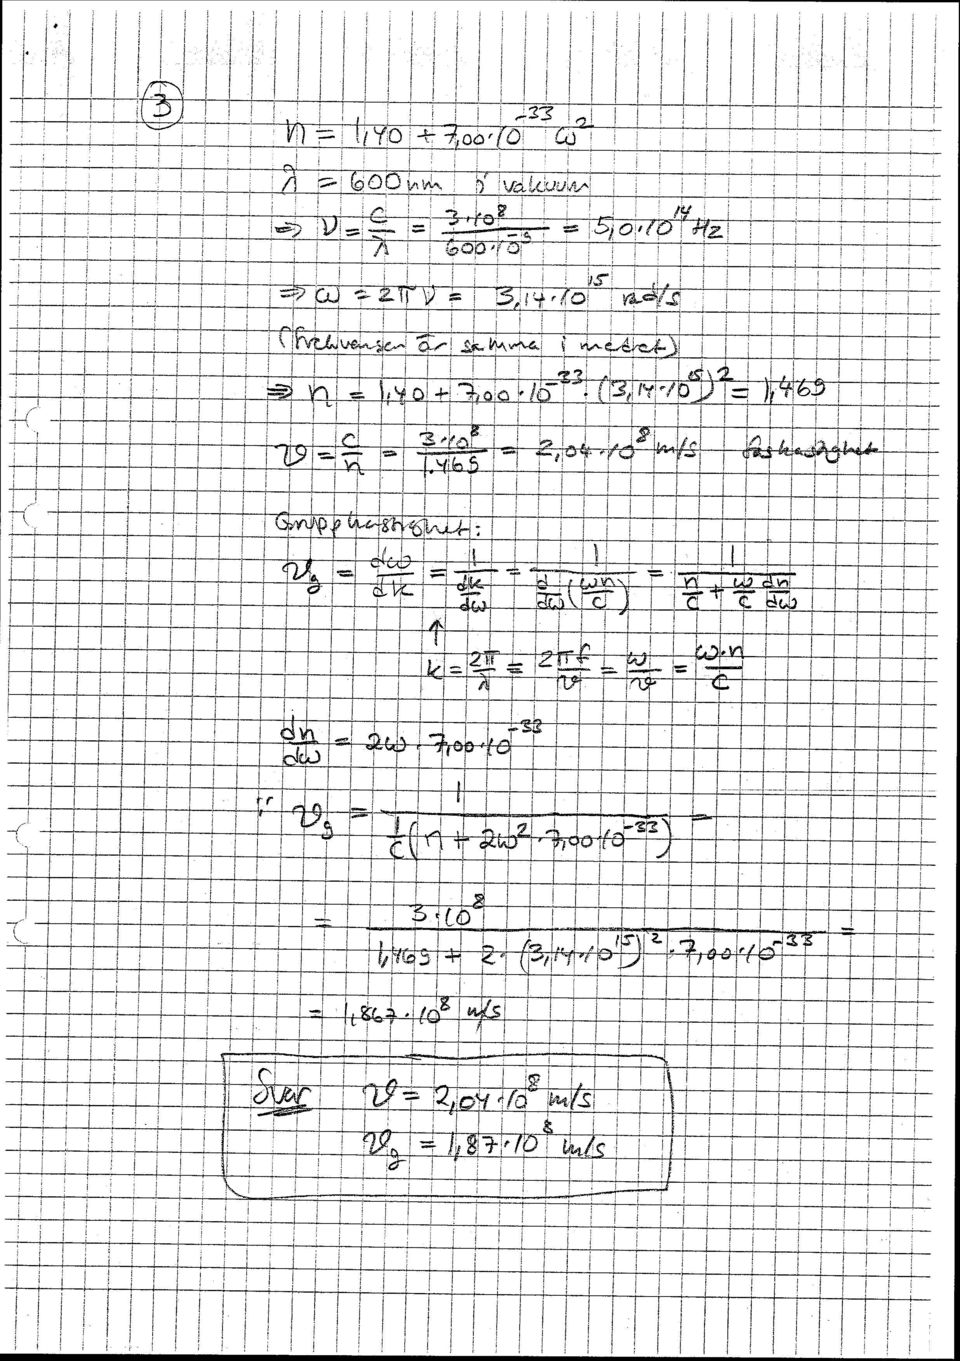 3
n = 1,40 + 7,00·10^-33 ω^2
λ = 600 nm i vakuum
⇒ ν = c/λ = 3·10^8 / 600·10^-9 = 5,0·10^14 Hz
⇒ ω = 2πν = 3,14·10^15 rad/s
(frekvensen är samma i mediet)
⇒ n = 1,40 + 7,00·10^-33 · (3,14·10^15)^2 = 1,469
v = c/n = 3·10^8 / 1.469 = 2,04·10^8 m/s fashastighet
Grupphastighet:
v_g = dω/dk = 1/(dk/dω) = 1/(d/dω(ωn/c)) = 1/(n/c + ω/c dn/dω)
↑
k = 2π/λ = 2πf/v = ω/v = ω·n/c
dn/dω = 2ω · 7,00·10^-33
∴ v_g = 1/(1/c(n + 2ω^2 · 7,00·10^-33)) =
= 3·10^8 / (1,469 + 2·(3,14·10^15)^2 · 7,00·10^-33) =
= 1,867·10^8 m/s
Svar v = 2,04·10^8 m/s
v_g = 1,87·10^8 m/s